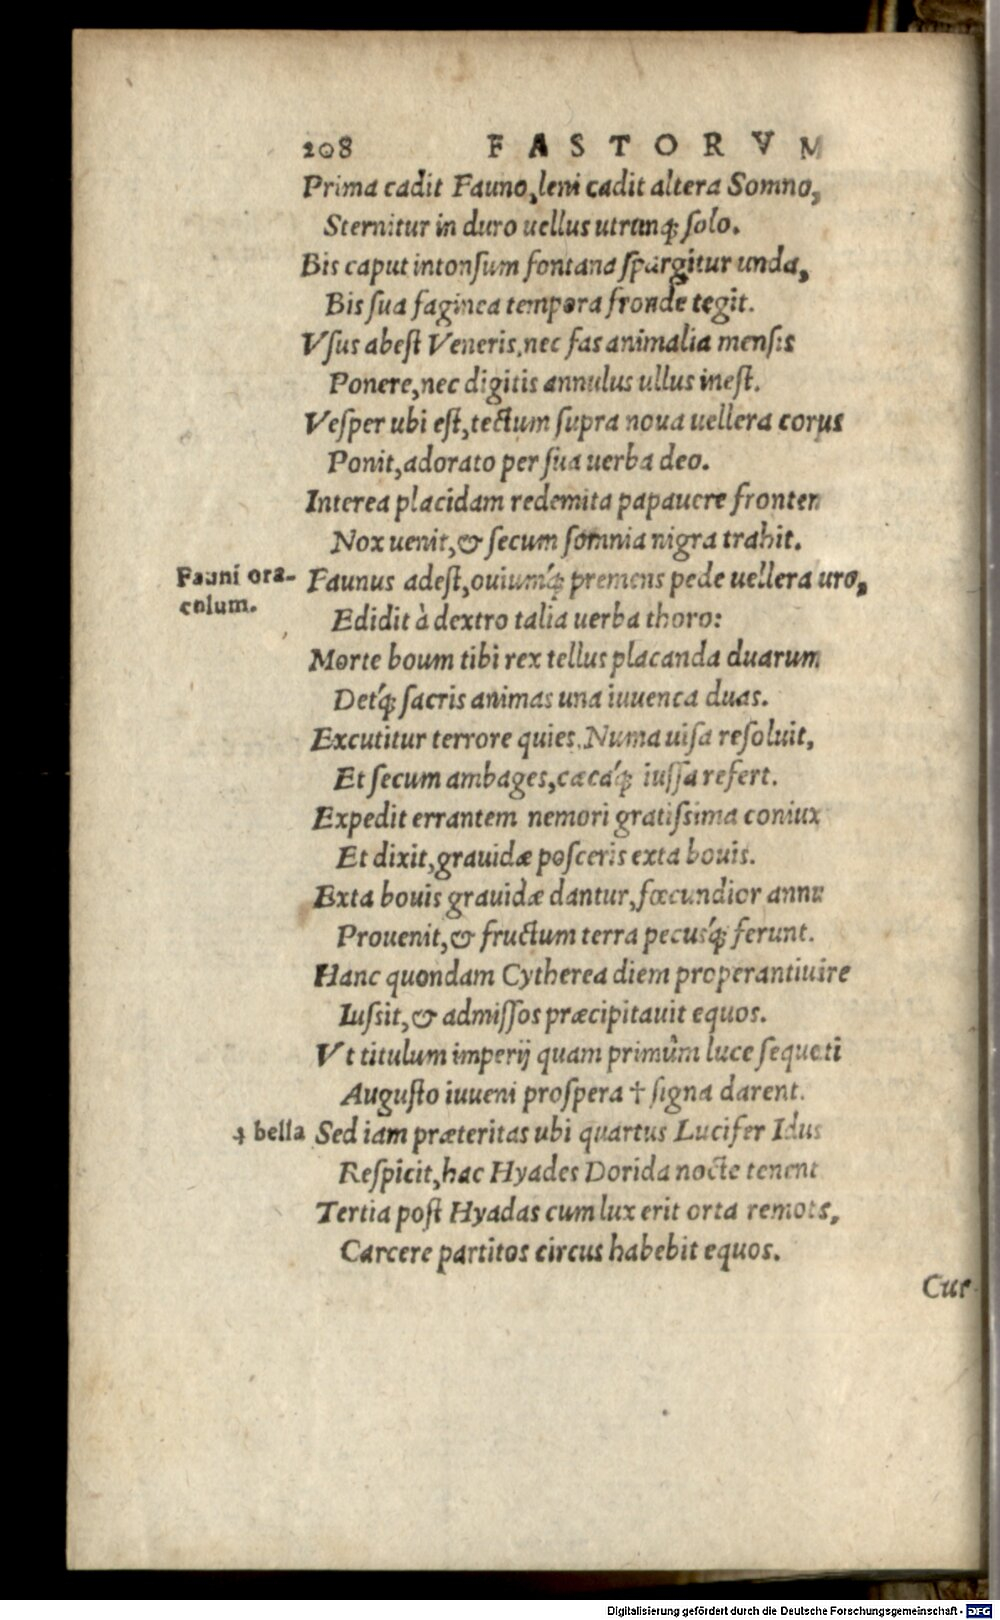 208 FASTORVM
Prima cadit Fauno, leni cadit altera Somno,
Sternitur in duro uellus utrunq; ſolo.
Bis caput intonſum fontana ſpargitur unda,
Bis ſua faginea tempora fronde tegit.
Vſus abeſt Veneris, nec fas animalia menſis
Ponere, nec digitis annulus ullus ineſt.
Veſper ubi eſt, tectum ſupra noua uellera corpus
Ponit, adorato per ſua uerba deo.
Interea placidam redemita papauere frontem
Nox uenit, & ſecum ſomnia nigra trahit.
Fauni ora-
culum.
Faunus adeſt, ouiumq́; premens pede uellera uro,
Edidit à dextro talia uerba thoro:
Morte boum tibi rex tellus placanda duarum
Detq́; ſacris animas una iuuenca duas.
Excutitur terrore quies. Numa uiſa reſoluit,
Et ſecum ambages, cæcaq́; iuſſa refert.
Expedit errantem nemori gratiſsima coniux
Et dixit, grauidæ poſceris exta bouis.
Exta bouis grauidæ dantur, fœcundior annu
Prouenit, & fructum terra pecusq́; ferunt.
Hanc quondam Cytherea diem properantiuire
Iuſsit, & admiſſos præcipitauit equos.
Vt titulum imperij quam primûm luce sequeti
Auguſto iuueni proſpera † ſigna darent.
ɟ bella Sed iam præteritas ubi quartus Lucifer Idus
Reſpicit, hac Hyades Dorida nocte tenent
Tertia poſt Hyadas cum lux erit orta remots,
Carcere partitos circus habebit equos.
Cur
Digitalisierung gefördert durch die Deutsche Forschungsgemeinschaft - DFG